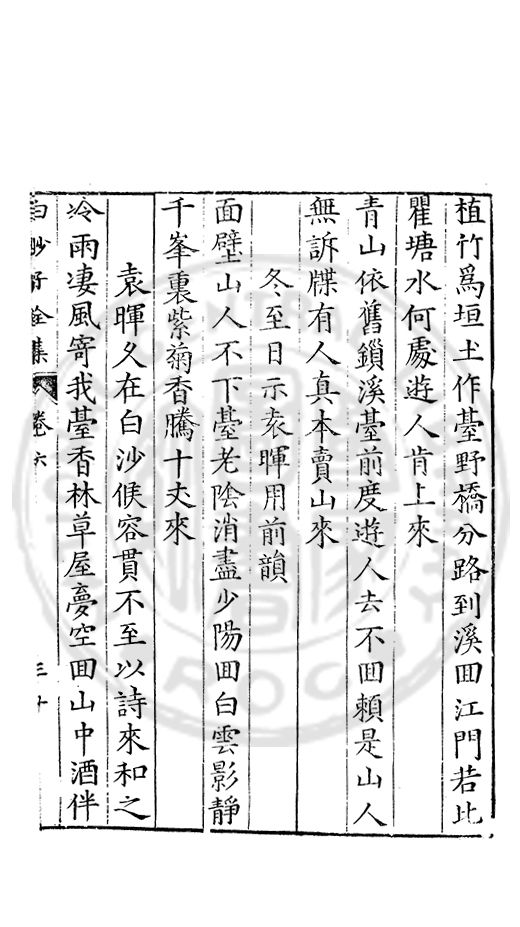 植竹為垣土作臺野橋分路到溪囬江門若比
瞿塘水何處遊人肯上來
青山依舊鎖溪臺前度遊人去不囬賴是山人
無訴牒有人真本賣山來
冬至日示袁暉用前韻
面壁山人不下臺老陰消盡少陽囬白雲影靜
千峯裏紫菊香騰十丈來
袁暉久在白沙候容貫不至以詩來和之
冷雨凄風寄我臺香林草屋夣空囬山中酒伴
白沙子全集 卷六 三十